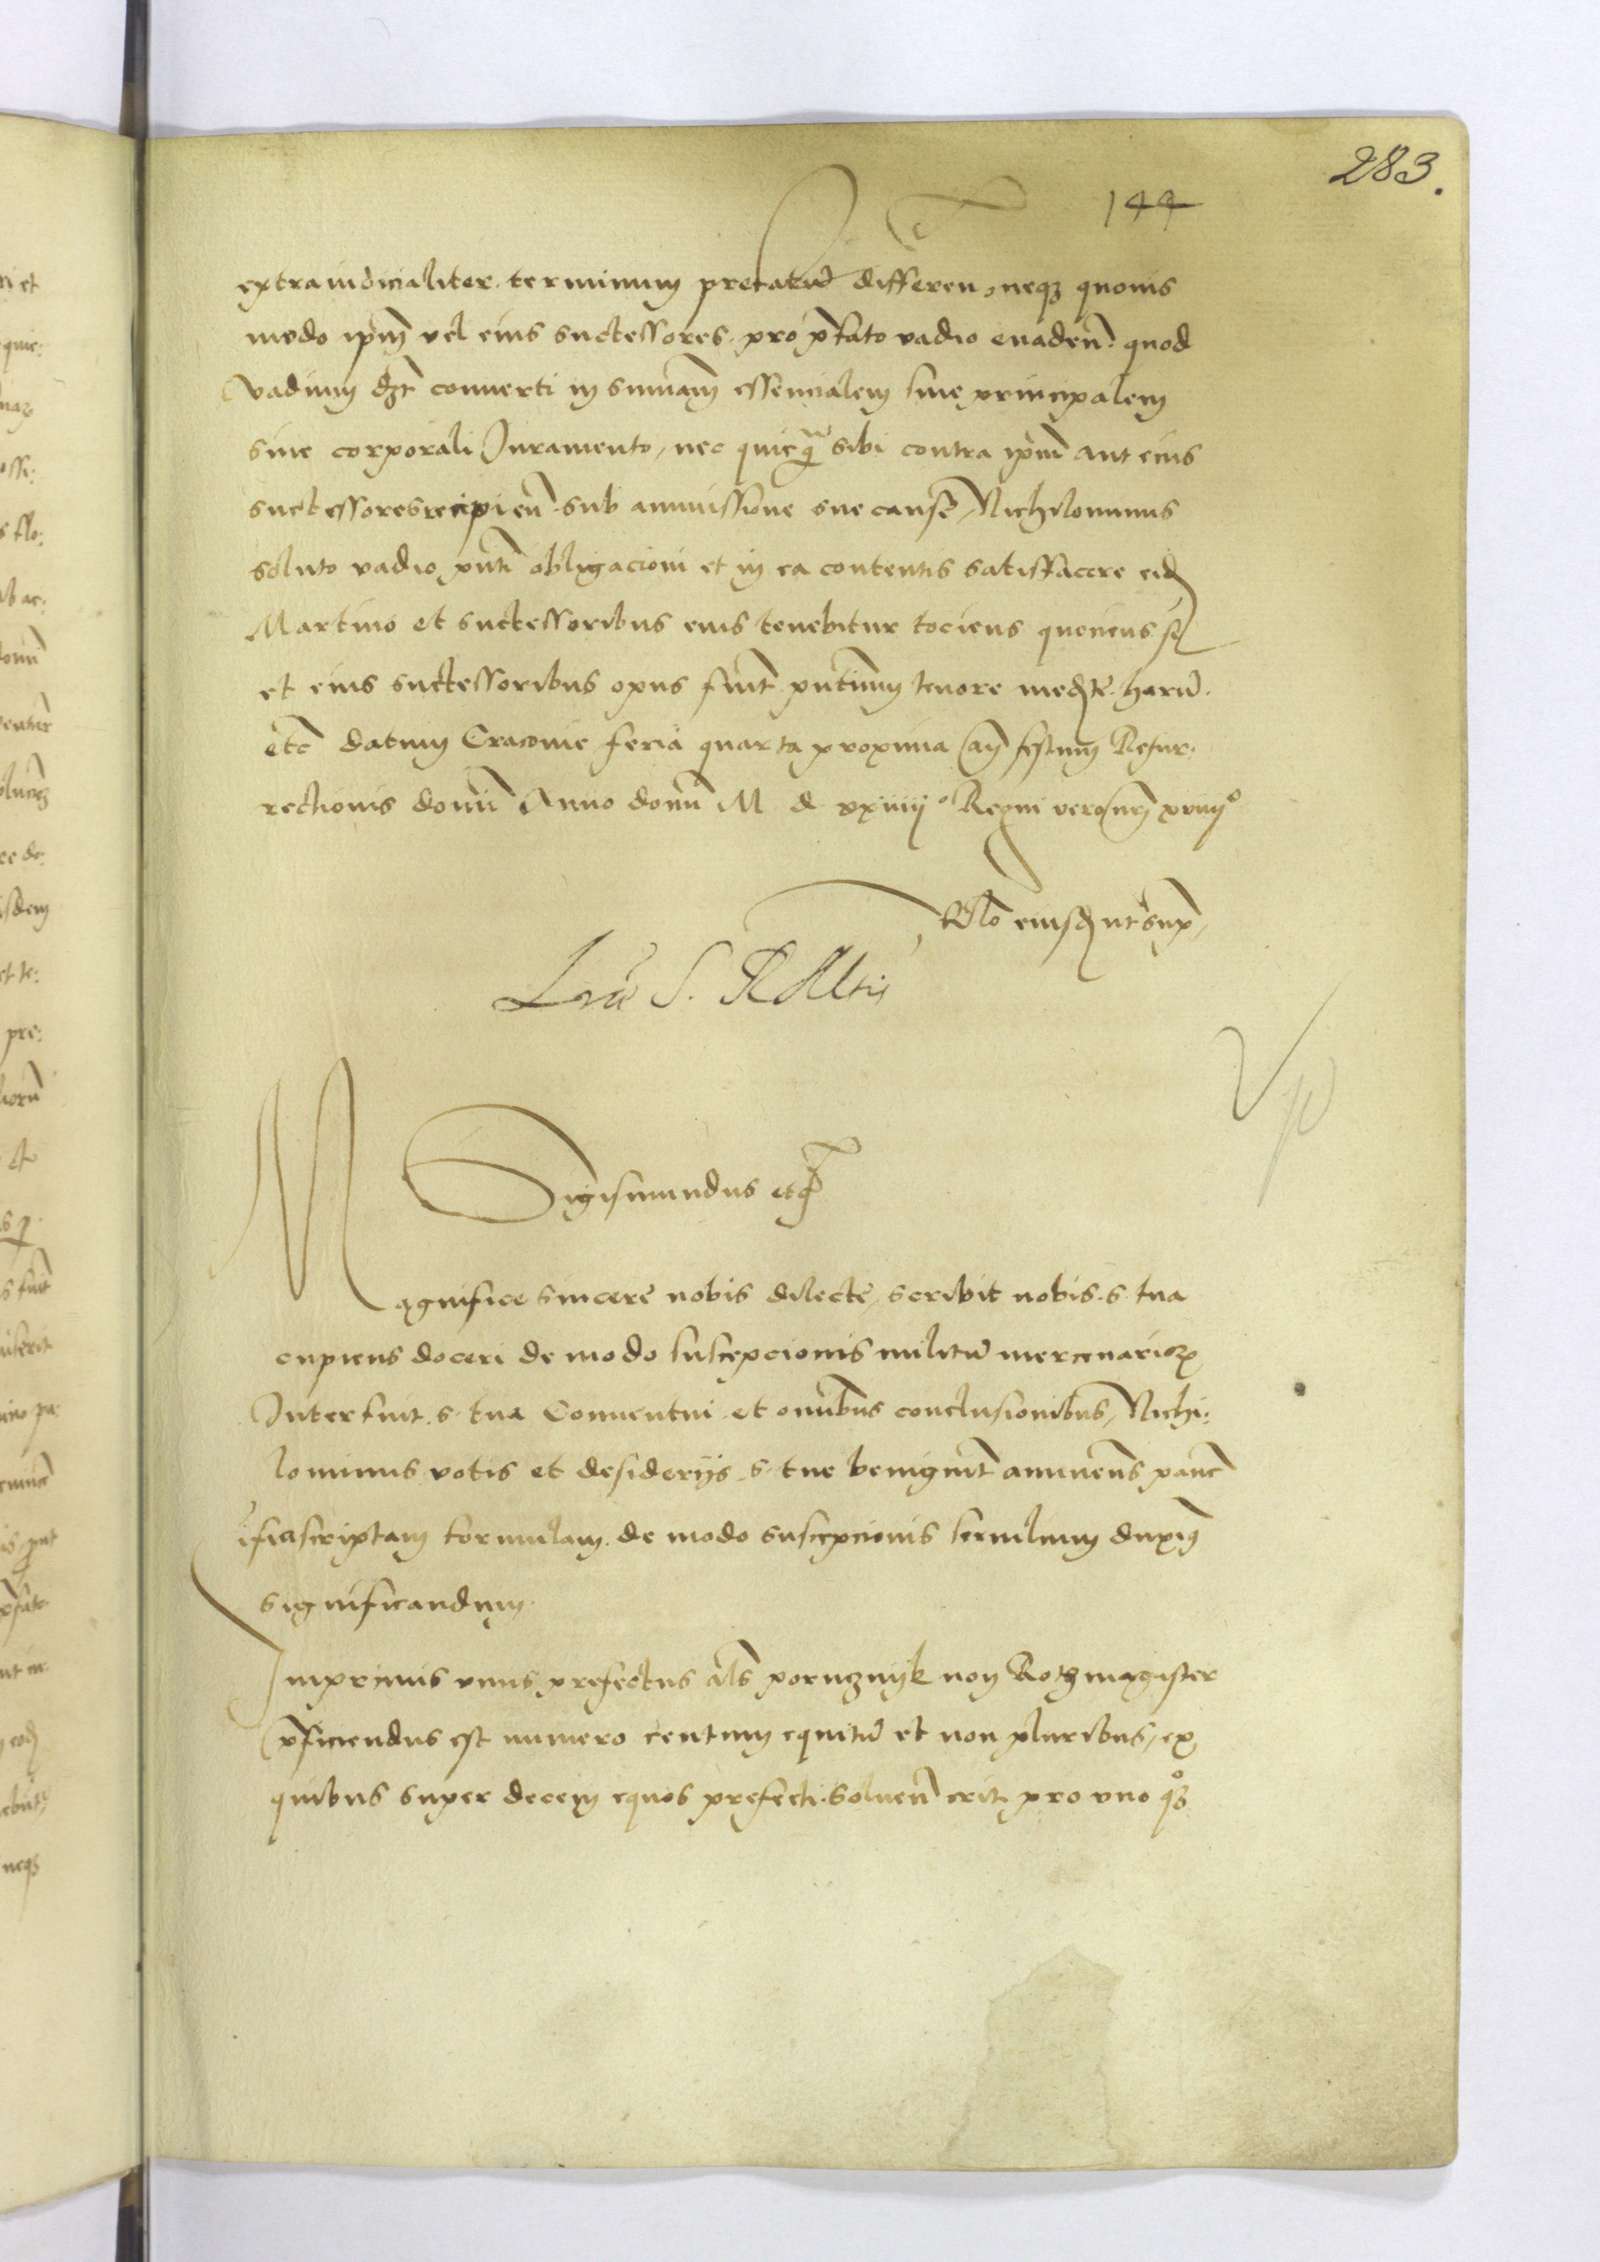 283.
144
extraiudicialiter. terminum pretactum differen. neqz quouis
modo ipm vel eius successores. pro pfato vadio euaden. quod
vadium dzt conuerti in summam essencialem siue principalem
sine corporali Juramento, nec quicqm sibi contra ipm aut eius
successores recipien. sub ammissione sue cause, Nichilominus
soluto vadio, pnti obligacioni et in ea contentis satisffacere eid
Martino et successoribus eius tenebitur tociens quociens si
et eius successoribus opus fuit pntium tenore medte. haru.
etc datum Cracouie feria quarta proxima an festum Resur.
rectionis domi Anno domi M d xxiiij° Regni vero nri xviij°
Rlo eiusd ut sup,
Lrae S. R Mtis
Sigismundus etc
Magnifice sincere nobis dilecte, scribit nobis. s. tua
cupiens doceri de modo suscepcionis militu mercenarioru
Interfuit. s. tua Conuentui et omibus conclusionibus, Nichi:
lominus votis et desiderijs. s. tue benignit annuens panc
ifrascriptam formulam. de modo suscepcionis seruilium duximus
significandum.
Imprimis vnus prefectus als porucznijk non Rothmagister
pficiendus est numero centum equitu et non pluribus, ex
quibus super decem equos prefecti. soluen erit, pro vno qz